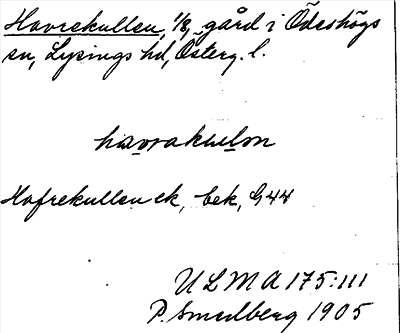 Havrekullen, 1/8, gård i Ödeshögs
sn, Lysings hd, Österg. l.
havrakulon
Hafrekullen ek, bek, G44
ULMA 175:111
P. Smedberg 1905